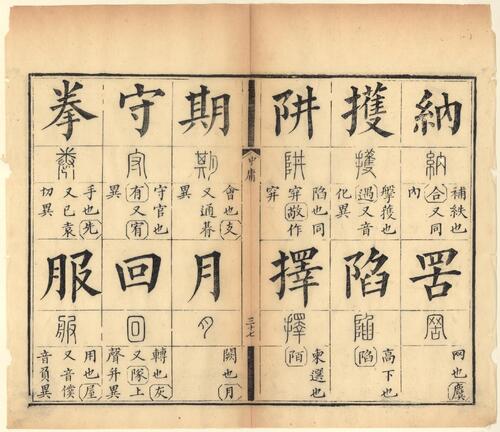 納
納
補紩也
合又同
內
罟
罟
网也麌
擭
擭
獲也
遇又音
化異
陷
陷
高下也
陷
阱
阱
陷也同
穽敬作
穽
擇
擇
柬選也
陌
中庸
三十七
期
期
會也支
又通朞
月
月
闕也月
守
守
守官也
有又宥
異
回
回
轉也灰
又隊上
聲升異
拳
拳
手也先
又已袁
切異
服
服
用也屋
又音僕
音負異